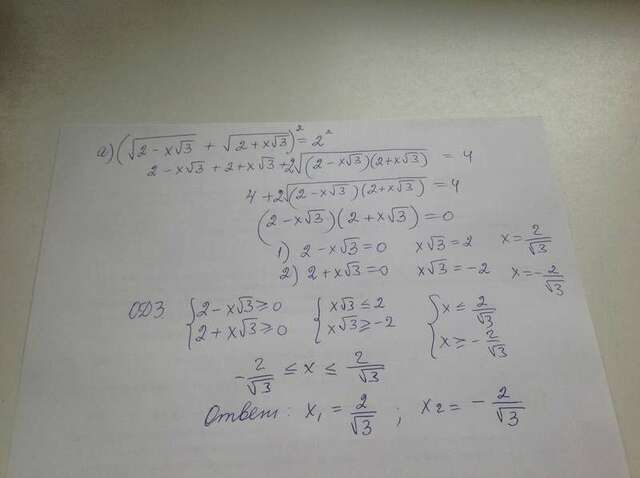 а) (√(2-x√3) + √(2+x√3))² = 2²
2-x√3 + 2+x√3 + 2√((2-x√3)(2+x√3)) = 4
4 + 2√((2-x√3)(2+x√3)) = 4
(2-x√3)(2+x√3) = 0
1) 2-x√3 = 0 x√3 = 2 x = 2/√3
2) 2+x√3 = 0 x√3 = -2 x = -2/√3
ОДЗ { 2-x√3 ≥ 0 { x√3 ≤ 2 { x ≤ 2/√3
2+x√3 ≥ 0 x√3 ≥ -2 x ≥ -2/√3
-2/√3 ≤ x ≤ 2/√3
Ответ: x₁ = 2/√3 ; x₂ = -2/√3